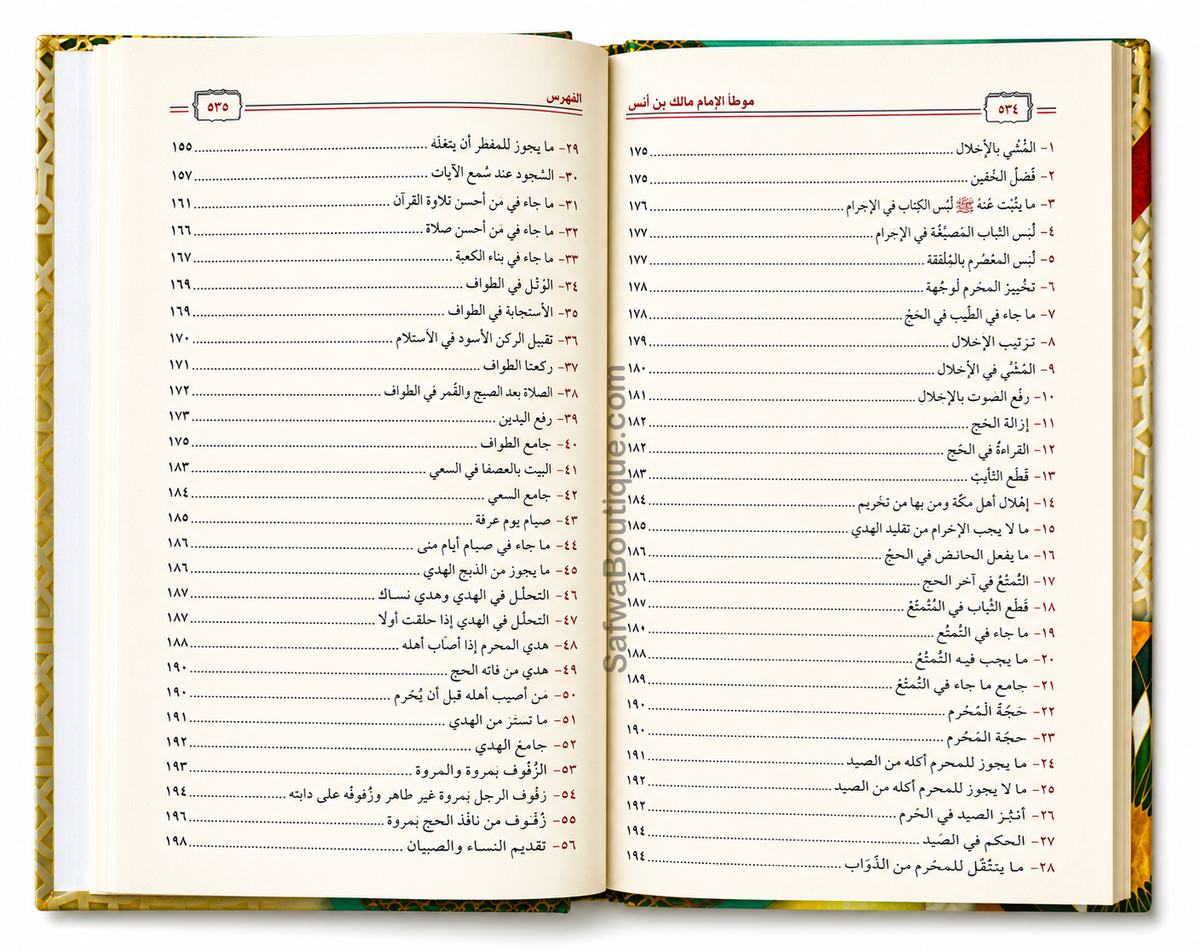 ٥٣٤
موطأ الإمام مالك بن أنس
١- المُشُي بالأخلال ١٧٥
٢- فَضلُ الخُفين ١٧٥
٣- ما يثُبْت عَنهُ ﷺ لَبْس الكِتاب في الإجَرام ١٧٦
٤- لُبَس الثْباب المَصبُغُة في الإحَرام ١٧٧
٥- لُبَس المعُصْرم بالمُلْفقة ١٧٧
٦- تخُييز المحَرم لُوجُهة ١٧٨
٧- ما جاء في الطّيب في الحَجُ ١٧٨
٨- تـزتيب الإخلال ١٧٩
٩- المُشُي في الأخلال ١٨٠
١٠- رفُع الصَوت بالإخلال ١٨١
١١- إزالة الحَج ١٨٢
١٢- القراءةُ في الحَج ١٨٢
١٣- قَطَع التْأيث ١٨٣
١٤- إهْلال أهل مكّة ومن بها من تخُريم ١٨٤
١٥- ما لا يجب الإخرام من تقليد الهدي ١٨٥
١٦- ما يفعل الحانـض في الحجْ ١٨٦
١٧- التُمتْعُ في آخر الحج ١٨٦
١٨- قَطَع الثُباب في المُتْمتُعْ ١٨٧
١٩- ما جاء في التُمتُع ١٨٠
٢٠- ما يجب فيه التُمتُعُ ١٨٨
٢١- جامع ما جاء في التُمتُعْ ١٨٩
٢٢- حَجّةُ الْـمُحُرم ١٩٠
٢٣- حجّة المَحُرم ١٩٠
٢٤- ما يجوز للمحرم أكله من الصيد ١٩١
٢٥- ما لا يجوز للمحرم أكله من الصيد ١٩٢
٢٦- أنـبُـز الصيد في الحَرم ١٩٢
٢٧- الحكم في الصَيد ١٩٤
٢٨- ما يتنُقّل للمحَرم من الدّوَاب ١٩٤
الفهرس
٥٣٥
٢٩- ما يجوز للمفطر أن يتغلّهَ ١٥٥
٣٠- السُّجود عند سُمع الآيات ١٥٧
٣١- ما جاء في مَن أحسن تلاوة القرآن ١٦١
٣٢- ما جاء في مَن أحسن صلاة ١٦٦
٣٣- ما جاء في بناء الكعبة ١٦٧
٣٤- الوُتْل في الطواف ١٦٩
٣٥- الأستجابة في الطواف ١٦٩
٣٦- تقبيل الركن الأسود في الأستلام ١٧٠
٣٧- ركعتا الطواف ١٧١
٣٨- الصلاة بعد الصبح والقُمر في الطواف ١٧٢
٣٩- رفع اليدين ١٧٣
٤٠- جامع الطواف ١٧٥
٤١- البيت بالعصفا في السعي ١٨٣
٤٢- جامع السعي ١٨٤
٤٣- صيام يوم عرفة ١٨٥
٤٤- ما جاء في صيام أيام منى ١٨٦
٤٥- ما يجوز من الذبج الهدي ١٨٦
٤٦- التحلْـل في الهدي وهدي نسـاك ١٨٧
٤٧- التحلُـل في الهدي إذا حلقت أولا ١٨٧
٤٨- هدي المحرم إذا أصَاب أهله ١٨٨
٤٩- هدي من فاته الحج ١٩٠
٥٠- مَن أصيب أهله قبل أن يُحَرم ١٩٠
٥١- ما تستَـز من الهدي ١٩١
٥٢- جامعْ الهدي ١٩٢
٥٣- الزُفُوف بَمروة والمروة ١٩٣
٥٤- زفُوف الرجل بَمروة غير طاهر وزُفوفُه على دابته ١٩٤
٥٥- زُفُـوف من نافَذ الحج بَمروة ١٩٦
٥٦- تقديم النسـاء والصبيان ١٩٨
SafwaBoutique.com